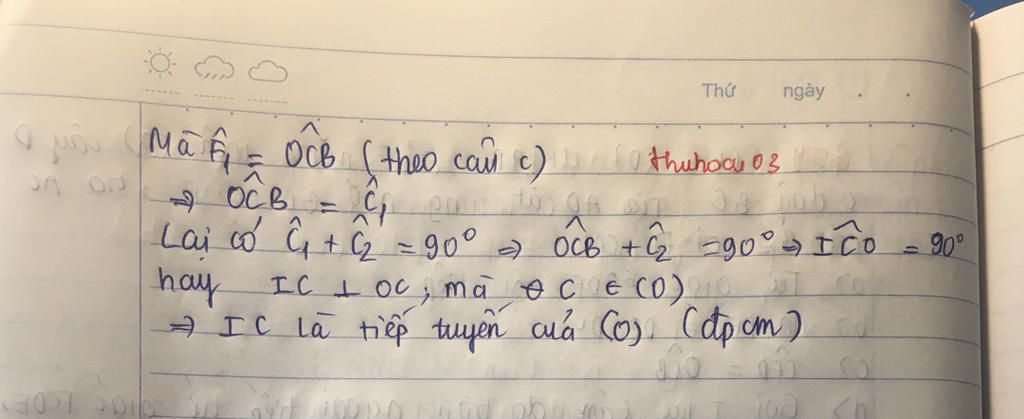 Thứ ngày . .
Mà F̂₁ = OĈB (theo câu c) thuhocu 03
⇒ OĈB = Ĉ₁
Lại có Ĉ₁ + Ĉ₂ = 90° ⇒ OĈB + Ĉ₂ = 90° ⇒ IĈO = 90°
hay IC ⊥ OC, mà C ∈ (O)
⇒ IC là tiếp tuyến của (O) (đpcm)